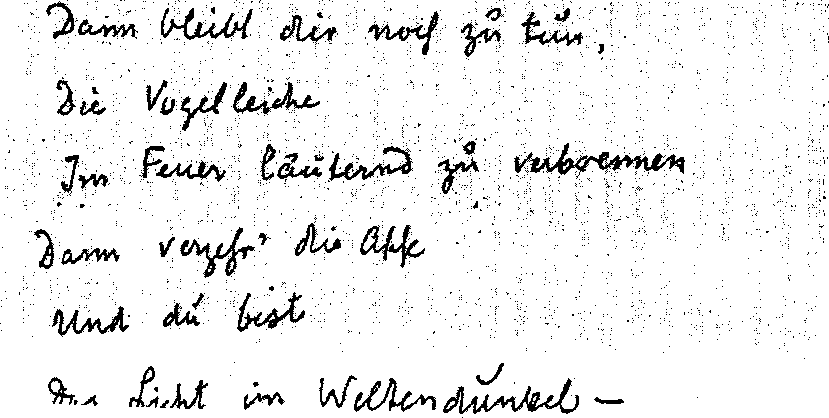 Dann bleibt dir noch zu tun,
Die Vogelleiche
Im Feuer läuternd zu verbrennen
Dann verzehr' die Asche
Und du bist
Das Licht im Weltendunkel –